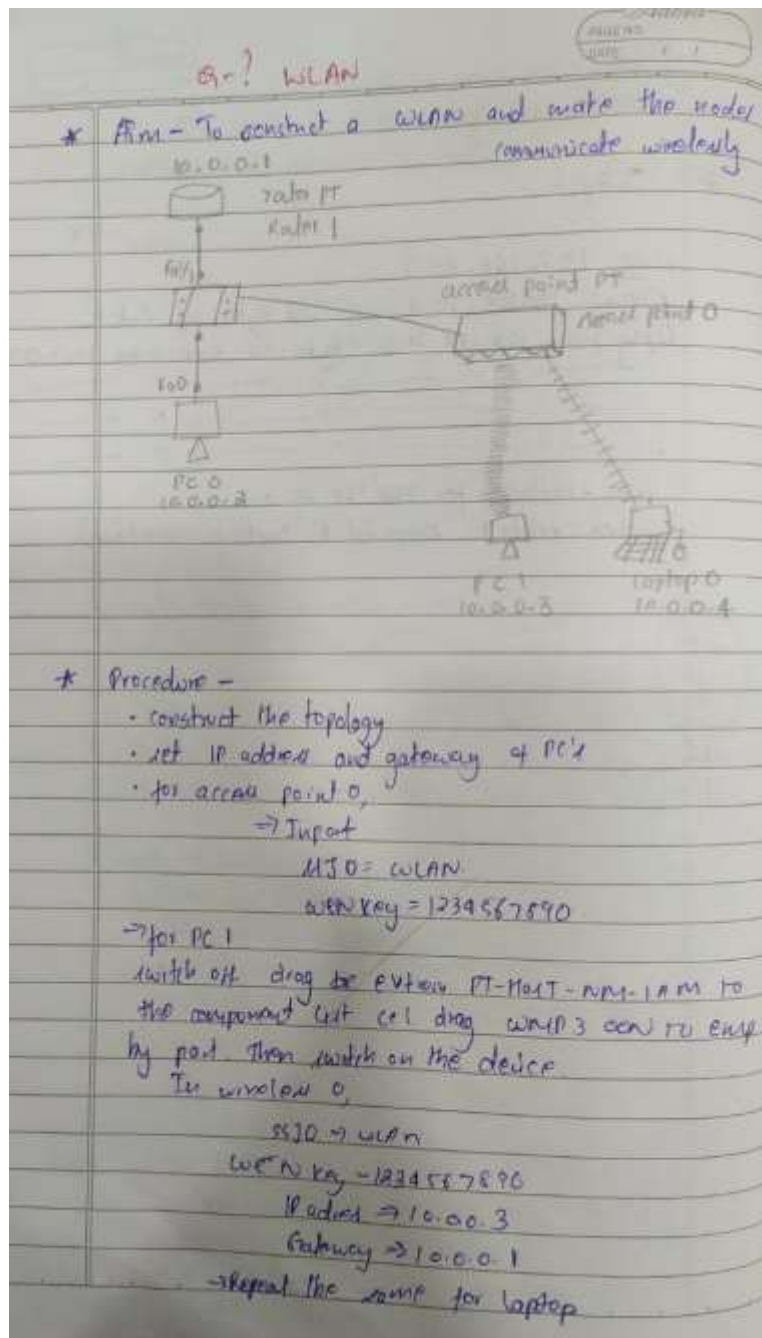 PAGE NO
DATE / /
Q-? WLAN
* Aim - To construct a WLAN and make the nodes
communicate wirelessly
10.0.0.1
Router 1
access point PT
point 0
PC 0
10.0.0.2
PC 1
10.0.0.3
Laptop 0
10.0.0.4
* Procedure -
· construct the topology
· set IP address and gateway of PC's
· for access point 0,
⇒ Input
= WLAN
Key = 1234567890
→ for PC 1
switch off drag the PT-HOST-NM-1AM to
the component list drag to
by port. Then switch on the device
In wireless 0,
SSID → WLAN
Key - 1234567890
IP address ⇒ 10.0.0.3
Gateway ⇒ 10.0.0.1
→ Repeat the same for laptop